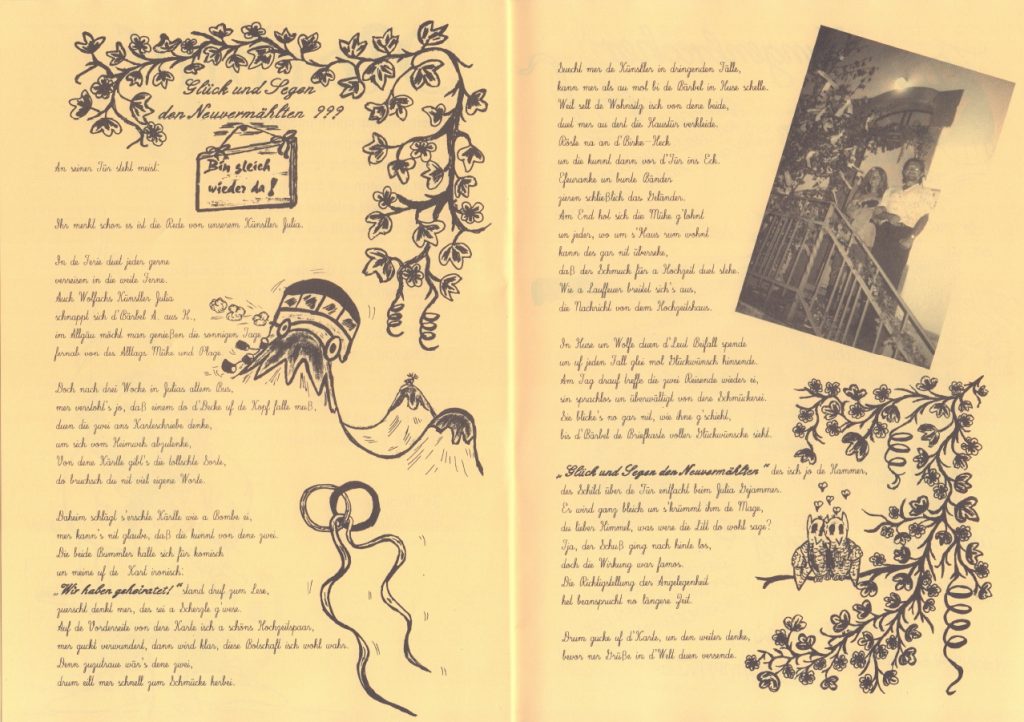 Glück und Segen
den Neuvermählten ???
An seiner Tür steht meist:
Bin gleich
wieder da!
Ihr merkt schon es ist die Rede von unserem Künstler Julia.
In de Ferie duet jeder gerne
verreisen in die weite Ferne.
Auch Wolfachs Künstler Julia
schnappt sich d'Bärbel A. aus H.,
im Allgäu möcht man genießen die sonnigen Tage
fernab von des Alltags Mühe und Plage.
Doch nach drei Woche in Julias altem Bus,
mer versteht's jo, daß einem do d'Decke uf de Kopf falle muß,
duen die zwei ans Karteschriebe denke,
um sich vom Heimweh abzulenke,
Von dene Kärtle gibt's die tollschte Sorte,
do bruchsch du nit viel eigene Worte.
Daheim schlägt s'erschte Kärtle wie a Bombe ei,
mer kann's nit glaube, daß die kunnt von dene zwei.
Die beide Bummler halte sich für komisch
un meine uf de Kart ironisch:
„Wir haben geheiratet!" stand druf zum Lese,
zuerscht denkt mer, des sei a Scherzle g'wese.
Auf de Vorderseite von dere Karte isch a schöns Hochzeitspaar,
mer guckt verwundert, dann wird klar, diese Botschaft isch wohl wahr.
Denn zuzutraue wär's dene zwei,
drum eilt mer schnell zum Schmücke herbei.
Suecht mer de Künstler in dringenden Fälle,
kann mer als au mol bi de Bärbel in Huse schelle.
Weil sell de Wohnsitz isch von dene beide,
duet mer au dert die Haustür verkleide.
Rösle na an d'Birke-Heck
un die kunnt dann vor d'Tür ins Eck.
Efeuranke un bunte Bänder
zieren schließlich das Geländer.
Am End hot sich die Mühe g'lohnt
un jeder, wo um s'Haus rum wohnt
kann des gar nit übersehe,
daß der Schmuck für a Hochzeit duet stehe.
Wie a Lauffeuer breitet sich's aus,
die Nachricht von dem Hochzeitshaus.
In Huse un Wolfe duen d'Leut Beifall spende
un uf jeden Fall glei mol Glückwünsch hinsende.
Am Tag drauf treffe die zwei Reisende wieder ei,
sin sprachlos un überwältigt von dere Schmückerei.
Sie blicke's no gar nit, wie ihne g'schieht,
bis d'Bärbel de Briefkaste voller Glückwünsche sieht.
„Glück und Segen den Neuvermählten" des isch jo de Hammer,
des Schild über de Tür entfacht beim Julia Gejammer.
Er wird ganz bleich un s'krümmt ihm de Mage,
du lieber Himmel, was were die Litt do wohl sage?
Tja, der Schuß ging nach hinte los,
doch die Wirkung war famos.
Die Richtigstellung der Angelegenheit
het beansprucht no längere Zeit.
Drum gucke uf d'Karte, un den weiter denke,
bevor ner Grüße in d'Welt duen versende.